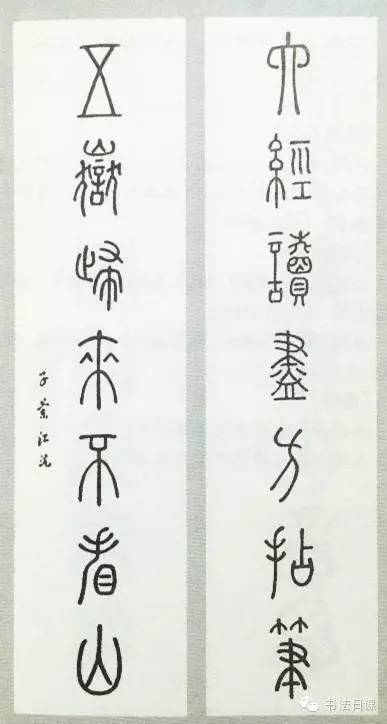 六經讀盡方拈筆
五嶽歸來不看山
书法日课